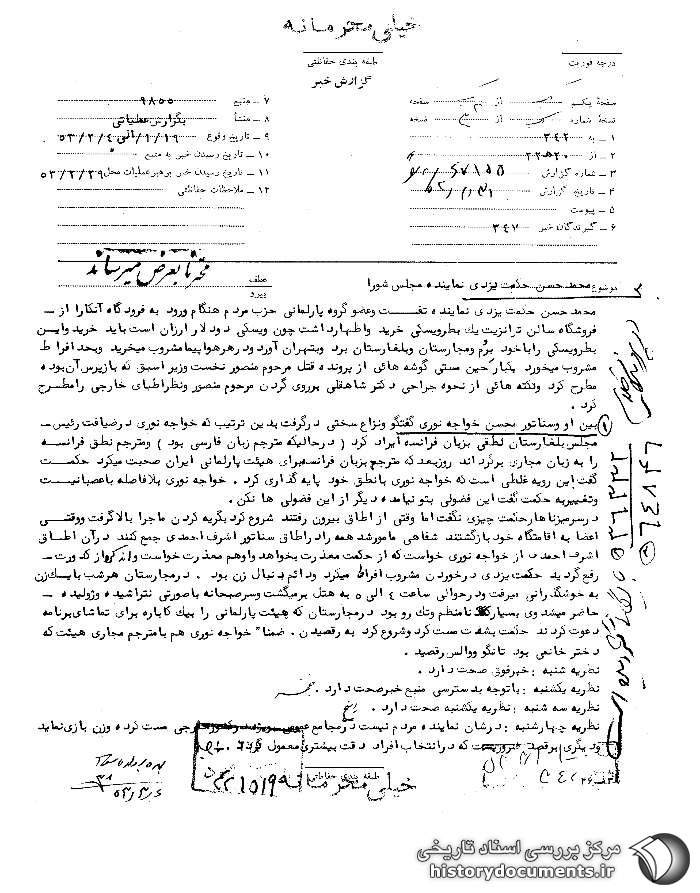 خیلی محرمانه
طبقه بندی حفاظتی
گزارش خبر
درجه فوریت
صفحه یکم از صفحه
نسخه شماره از نسخه
۱ ـ به ۳۴۲
۲ ـ از ۲۲ه۲۰
۳ ـ شماره گزارش
۴ ـ تاریخ گزارش
۵ ـ پیوست
۶ ـ گیرندگان خبر ۳۴۷
۷ ـ منبع ۹۸۵۵
۸ ـ منشأ بگزارش عملیاتی
۹ ـ تاریخ وقوع
۱۰ ـ تاریخ رسیدن خبر به منبع
۱۱ ـ تاریخ رسیدن خبر برهبرعملیات محل ۵۳/۲/۲۹
۱۲ ـ ملاحظات حفاظتی
محترما بعرض میرساند
موضوع محمد حسن حکمت یزدی نماینده مجلس شورا
عطف
پیرو
محمد حسن حکمت یزدی نماینده تفت وعضو گروه پارلمانی حزب مردم هنگام ورود به فرودگاه آنکارا از ـ
فروشگاه سالن ترانزیت یك بطرویسکی خرید واظهارداشت چون ویسکی دودلار ارزان است باید خرید واین
بطرویسکی راباخود برم ومجارستان وبلغارستان برد وبتهران آورد ودرهرهواپیمامشروب میخرید وبحد افراط
مشروب میخورد یکبار حین مستی گوشه هائی از پرونده قتل مرحوم منصور نخست وزیر اسبق که بازپرس آن بوده
مطرح کرد ونکته هائی از نحوه جراحی دکتر شاهقلی برروی گردن مرحوم منصور ونظراطبای خارجی رامطرح
کرد .
بین او وسناتور محسن خواجه نوری گفتگو ونزاع سختی درگرفت بدین ترتیب که خواجه نوری درضیافت رئیس ـ
مجلس بلغارستان نطقی بزبان فرانسه ایراد کرد ( درحالیکه مترجم زبان فارسی بود ) ومترجم نطق فرانسه
را به زبان مجاری برگرداند روزبعد که مترجم بزبان فرانسه برای هیئت پارلمانی ایران صحبت میکرد حکمت
گفت این رویه غلطی است که خواجه نوری بانطق خود پایه گذاری کرد . خواجه نوری بلافاصله باعصبانیت
وتغییر به حکمت گفت این فضولی بتو نیامده دیگر از این فضولی ها نکن .
درسرمیزناهارحکمت چیزی نگفت اما وقتی از اطاق بیرون رفتند شروع کرد بگریه کردن ماجرا بالاگرفت ووقتی
اعضا به اقامتگاه خود بازگشتند شفاهی مامورشد همه را دراطاق سناتور اشرف احمدی جمع کنند درآن اطاق
اشرف احمدی از خواجه نوری خواست که از حکمت معذرت بخواهد واوهم معذرت خواست کدورت ـ
رفع گردید حکمت یزدی درخوردن مشروب افراط میکرد ودائم بدنبال زن بود . درمجارستان هرشب بایك زن
به خوشگذرانی میرفت ودرحوالی ساعت ۴ الی ۵ به هتل برمیگشت وسرصبحانه باصورتی نتراشیده وژولیده ـ
حاضر میشد وی بسیار نامنظم وتك رو بود درمجارستان که هیئت پارلمانی را بیك کاباره برای تماشای برنامه
دعوت کردند حکمت بشدت مست کرد وشروع کرد به رقصیدن . ضمنا" خواجه نوری هم با مترجم مجاری هیئت که
دختر خانمی بود تانگو ووالس رقصید .
نظریه شنبه : خبرفوق صحت دارد .
نظریه یکشنبه : باتوجه بدسترسی منبع خبرصحت دارد .
نظریه سه شنبه : نظریه یکشنبه صحت دارد .
نظریه چهارشنبه : درشان نماینده مردم نیست درمجامع عمومی خارجی مست کرده وزن بازی نماید
که درانتخاب افراد دقت بیشتری معمول گردد .
طبقه بندی حفاظتی
خیلی محرمانه
مرکز بررسی اسناد تاریخی
historydocuments.ir